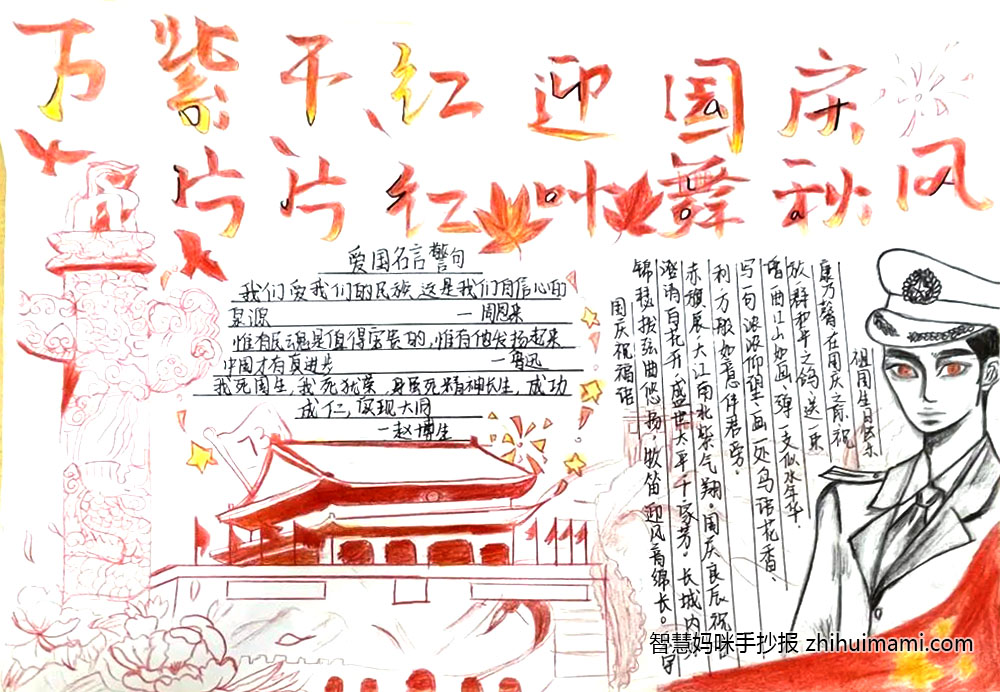 万紫千红迎国庆
片片红叶舞秋风
爱国名言警句
我们爱我们的民族,这是我们自信心的
泉源 —周恩来
惟有民魂是值得宝贵的,惟有他发扬起来
中国才有真进步 —鲁迅
我死国生,我死犹荣,身虽死精神长生,成功
成仁,实现大同
—赵博生
祖国生日快乐
康乃馨在国庆之际,祝
放群和平之鸽,送一束
唱一曲江山如画,弹一支似水年华,
写一句浓浓仰望,画一处鸟语花香,
利万般如意伴君旁。
赤旗展,大江南北紫气翔。国庆良辰祝
澄清百花开,盛世太平千家芳。长城内
锦瑟拨弦曲悠扬,牧笛迎风音绵长。
国庆祝福语
智慧妈咪手抄报 zhihuimami.com